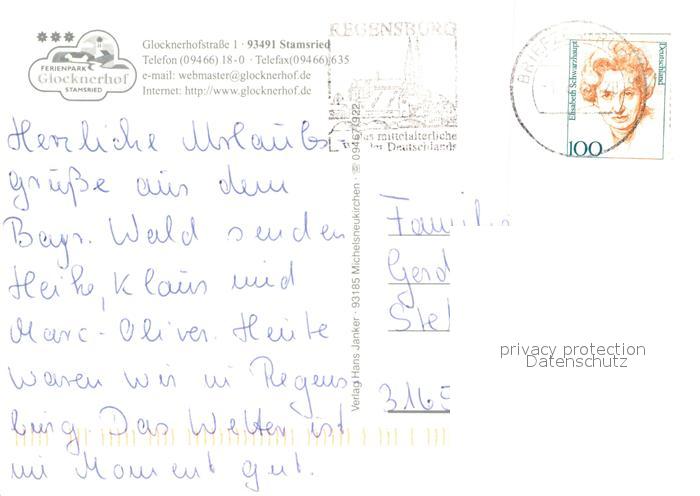 FERIENPARK
Glocknerhof
STAMSRIED
Glocknerhofstraße 1 · 93491 Stamsried
Telefon (09466) 18-0 · Telefax(09466)635
e-mail: webmaster@glocknerhof.de
Internet: http://www.glocknerhof.de
REGENSBURG
das mittelalterliche
Deutschlands
BRIEF
Elisabeth Schwarzhaupt
Deutschland
100
Herzliche Urlaubs
grüße aus dem
Bayr. Wald senden
Heike, Klaus und
Marc-Oliver. Heute
waren wir in Regens
burg. Das Wetter ist
im Moment gut.
Verlag Hans Janker · 93185 Michelsneukirchen · ☏ 09467/922
Familie
Gerd
Ste
3165
privacy protection
Datenschutz